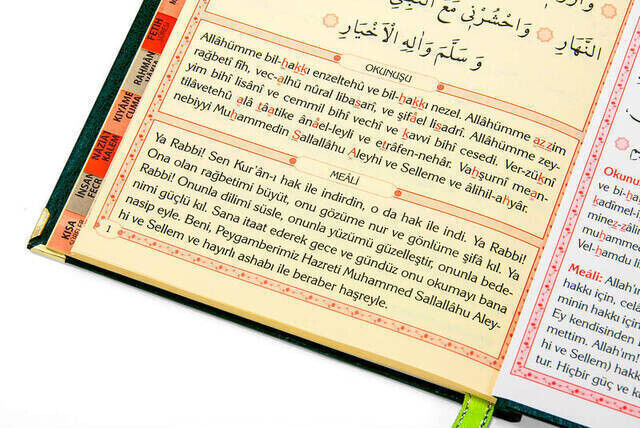 النَّهَارِ ۞ وَاحْشُرْنِي مَعَ النَّبِيِّ
وَسَلَّمَ وَاٰلِهِ الْاَخْيَارِ
OKUNUŞU
Allâhümme bil-hakkı enzeltehû ve bil-hakkı nezel. Allâhümme azzim
rağbetî fîh, vec-alhü nûral libasarî, ve şifâel lisadrî. Allâhümme zey-
yim bihî lisânî ve cemmil bihî vechî ve kavvi bihî cesedî. Ver-züknî
tilâvetehû alâ tâatike ânâel-leyli ve etrâfen-nehâr. Vahşurnî mean-
nebiyyi Muhammedin Sallallâhu Aleyhi ve Selleme ve âlihil-ahyâr.
MEÂLİ
Ya Rabbi! Sen Kur'ân-ı hak ile indirdin, o da hak ile indi. Ya Rabbi!
Ona olan rağbetimi büyüt, onu gözüme nur ve gönlüme şifâ kıl. Ya
Rabbi! Onunla dilimi süsle, onunla yüzümü güzelleştir, onunla bede-
nimi güçlü kıl. Sana itaat ederek gece ve gündüz onu okumayı bana
nasip eyle. Beni, Peygamberimiz Hazreti Muhammed Sallallâhu Aley-
hi ve Sellem ve hayırlı ashabı ile beraber haşreyle.
1
FETİH
SURESİ
RAHMÂN
VÂKIA
KIYÂME
CUMA
NÂZİÂT
KALEM
İNSAN
FECR
KISA
SURELER
Okunu
ve bi-ha
kadîmel
minez-zâli
muhamme
Vel-hamdu l
Meâli: Allah'ı
hakkı için, cel
minin hakkı içi
Ey kendisinden
mettim. Allah'ım!
hi ve Sellem) hakk
tur. Hiçbir güç ve k